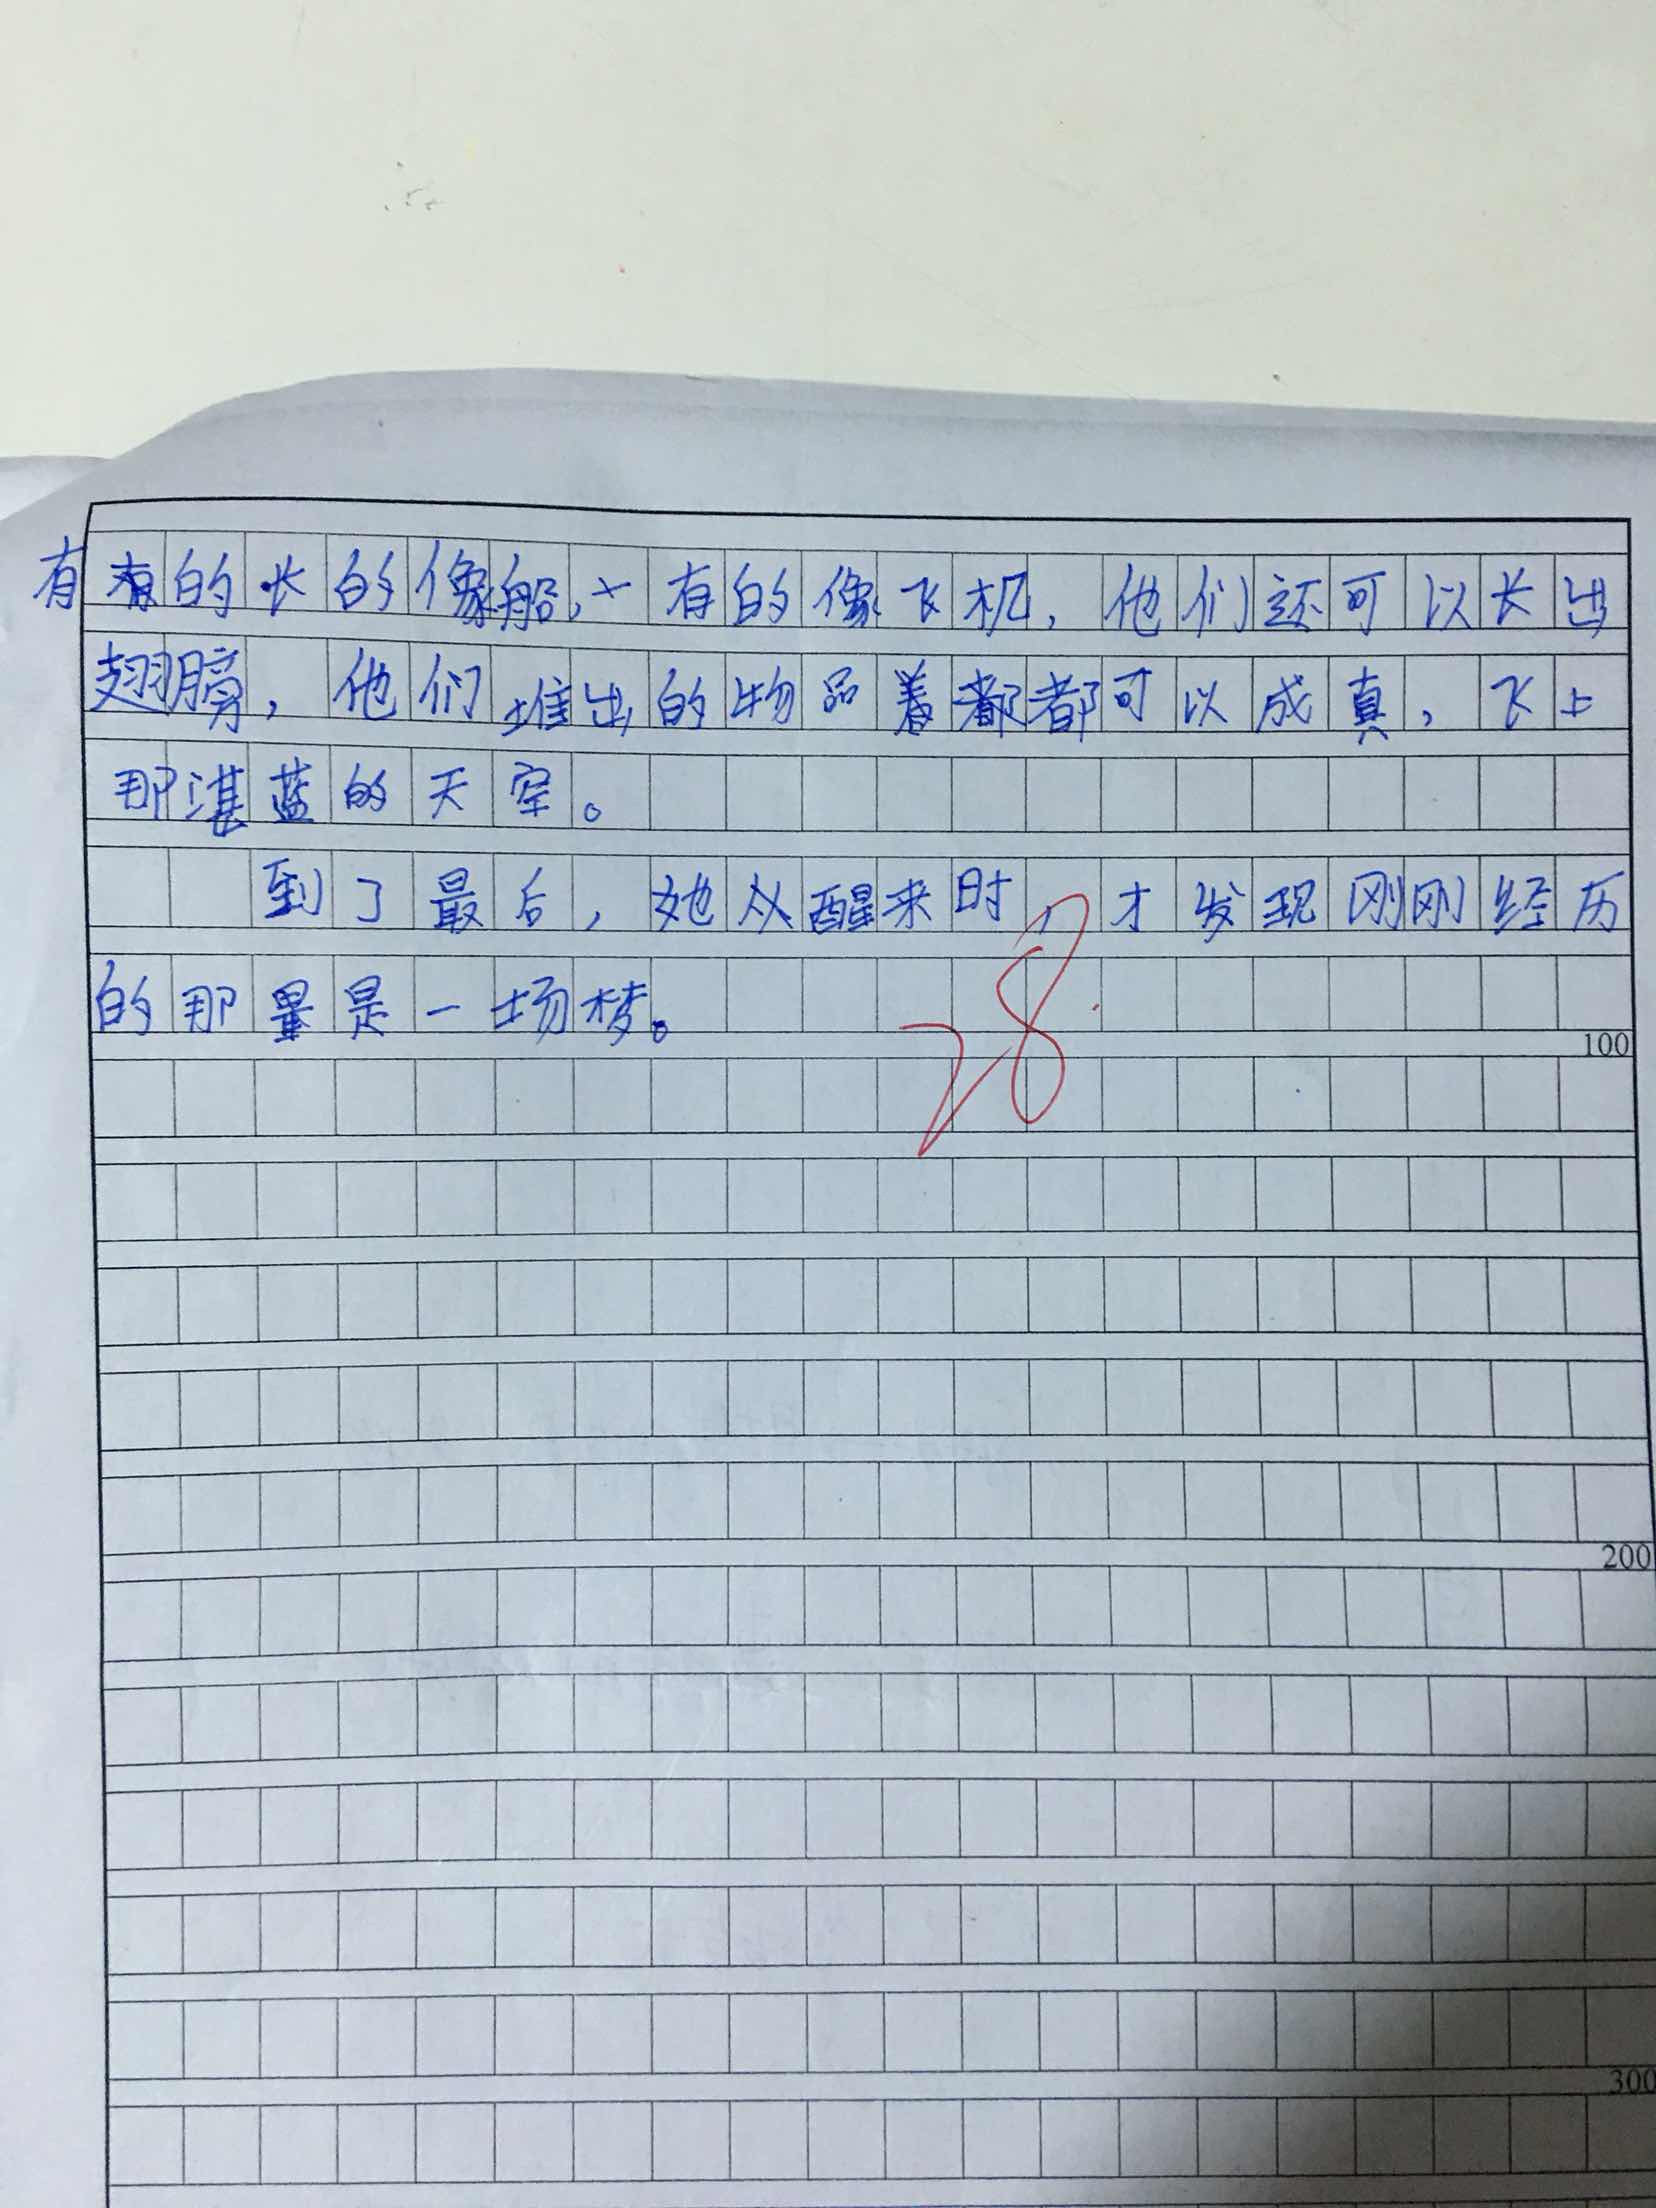 有的长的像船，有的像飞机，他们还可以长出
翅膀，他们堆出的物品都可以成真，飞上
那湛蓝的天空。
到了最后，她从醒来时，才发现刚刚经历
的那是一场梦。
28
100
200
300